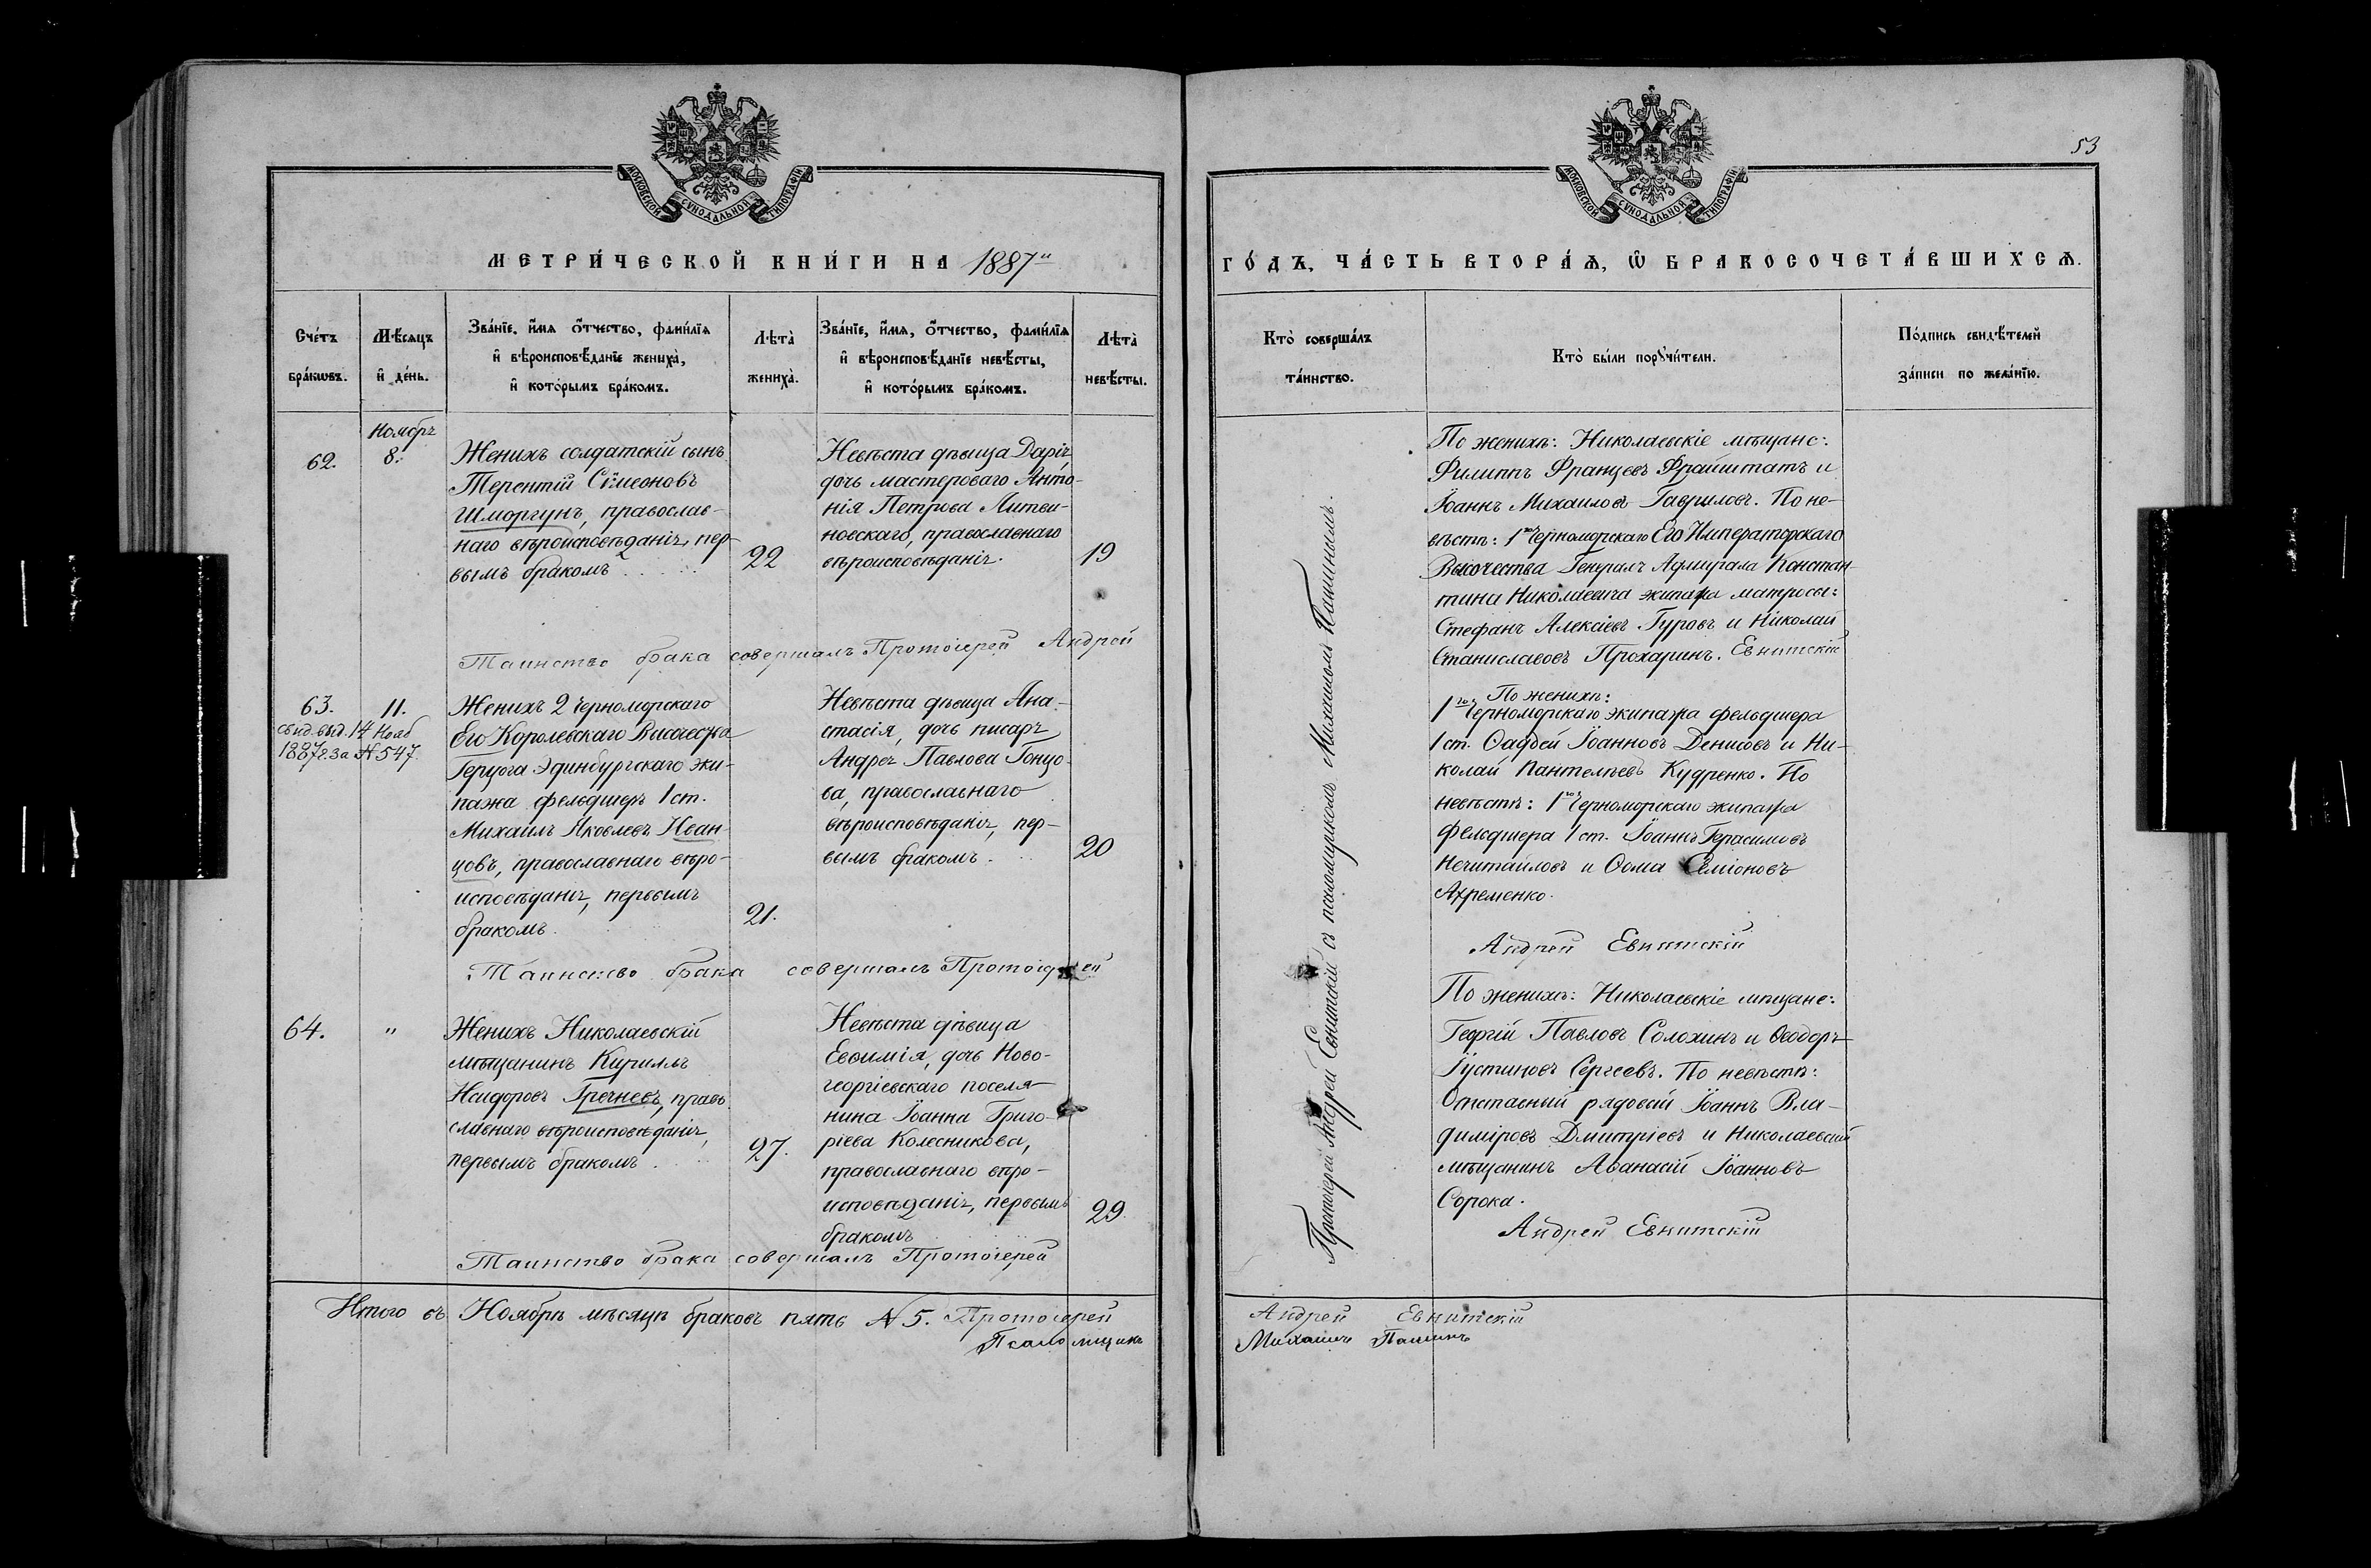 53
МОСКОВСКОЙ СѴНОДАЛЬНОЙ ТИПОГРАФІИ
МОСКОВСКОЙ СѴНОДАЛЬНОЙ ТИПОГРАФІИ
МЕТРИ́ЧЕСКОЙ КНИ́ГИ НА 1887й
ГО́ДЪ, ЧА́СТЬ ВТОРА́Ѧ, Ѡ҆ БРАКОСОЧЕТА́ВШИХСѦ.
Сче́тъ бра́кѡвъ.
Мѣ́сяцъ и҆ де́нь.
Зва́нїе, и҆́мя ѻ҆́тчество, фами́лїя и҆ вѣроисповѣ́данїе жениха̀, и҆ кото́рымъ бра́комъ.
Лѣта̀ жениха̀.
Зва́нїе, и҆́мя, ѻ҆́тчество, фами́лїя и҆ вѣроисповѣ́данїе невѣ́сты, и҆ кото́рымъ бра́комъ.
Лѣта̀ невѣ́сты.
Кто̀ соверша́лъ та́инство.
Кто̀ бы́ли порꙋчи́тели.
По́дпись свидѣ́телей за́писи по жела́нїю.
Ноябрь
62.
8.
Женихъ солдатскій сынъ
Терентій Сѷмеоновъ
Шморгунъ, православ-
наго вѣроисповѣданія, пер-
вымъ бракомъ
22
Невѣста дѣвица Дарія
дочь мастероваго Анто-
нія Петрова Литви-
новскаго, православнаго
вѣроисповѣданія.
19
По женихѣ: Николаевскіе мѣщане:
Филиппъ Францевъ Фрайштатъ и
Іоаннъ Михаиловъ Гавриловъ. По не-
вѣстѣ: 1го Черноморскаго Его Императорскаго
Высочества Генералъ Адмирала Констан-
тина Николаевича экипажа матросы:
Стефанъ Алексіевъ Гуровъ и Николай
Станиславовъ Прохаринъ. Евнитскій
Таинство брака совершалъ Протоіерей Андрей
63.
11.
свид. выд. 14 Нояб
1887г. за № 547.
Женихъ 2 Черноморскаго
Его Королевскаго Высочества
Герцога Эдинбургскаго эки-
пажа фельдшеръ 1 ст.
Михаилъ Яковлевъ Иван-
цовъ, православнаго вѣро-
исповѣданія, первымъ
бракомъ.
21.
Невѣста дѣвица Ана-
стасія, дочь писаря
Андрея Павлова Гонцо-
ва, православнаго
вѣроисповѣданія, пер-
вымъ бракомъ.
20
По женихѣ:
1го Черноморскаго экипажа фельдшера
1 ст. Ѳаддей Іоанновъ Денисовъ и Ни-
колай Пантелѣевъ Кудренко. По
невѣстѣ: 1го Черноморскаго экипажа
фельдшера 1 ст. Іоаннъ Герасимовъ
Нечитайловъ и Ѳома Семіоновъ
Ахременко.
Таинство брака совершалъ Протоіерей
Андрей Евнитскій
64.
"
Женихъ Николаевскій
мѣщанинъ Кириллъ
Исидоровъ Гречневъ, право
славнаго вѣроисповѣданія,
первымъ бракомъ.
27.
Невѣста дѣвица
Евѳимія, дочь Ново-
георгіевскаго поселя-
нина Іоанна Григо-
ріева Колесникова,
православнаго вѣро-
исповѣданія, первымъ
бракомъ
29.
По женихѣ: Николаевскіе мѣщане:
Георгій Павловъ Солохинъ и Ѳеодоръ
Іустиновъ Сергеевъ. По невѣстѣ:
Отставный рядовой Іоаннъ Вла-
диміровъ Дмитріевъ и Николаевскій
мѣщанинъ Аѳанасій Іоанновъ
Сорока.
Таинство брака совершалъ Протоіерей
Андрей Евнитскій
Протоіерей Андрей Евнитскій съ псаломщикомъ Михаиломъ Пашинымъ.
Итого въ Ноябрѣ мѣсяцѣ браковъ пять № 5. Протоіерей Андрей Евнитскій
Псаломщикъ Михаилъ Пашинъ